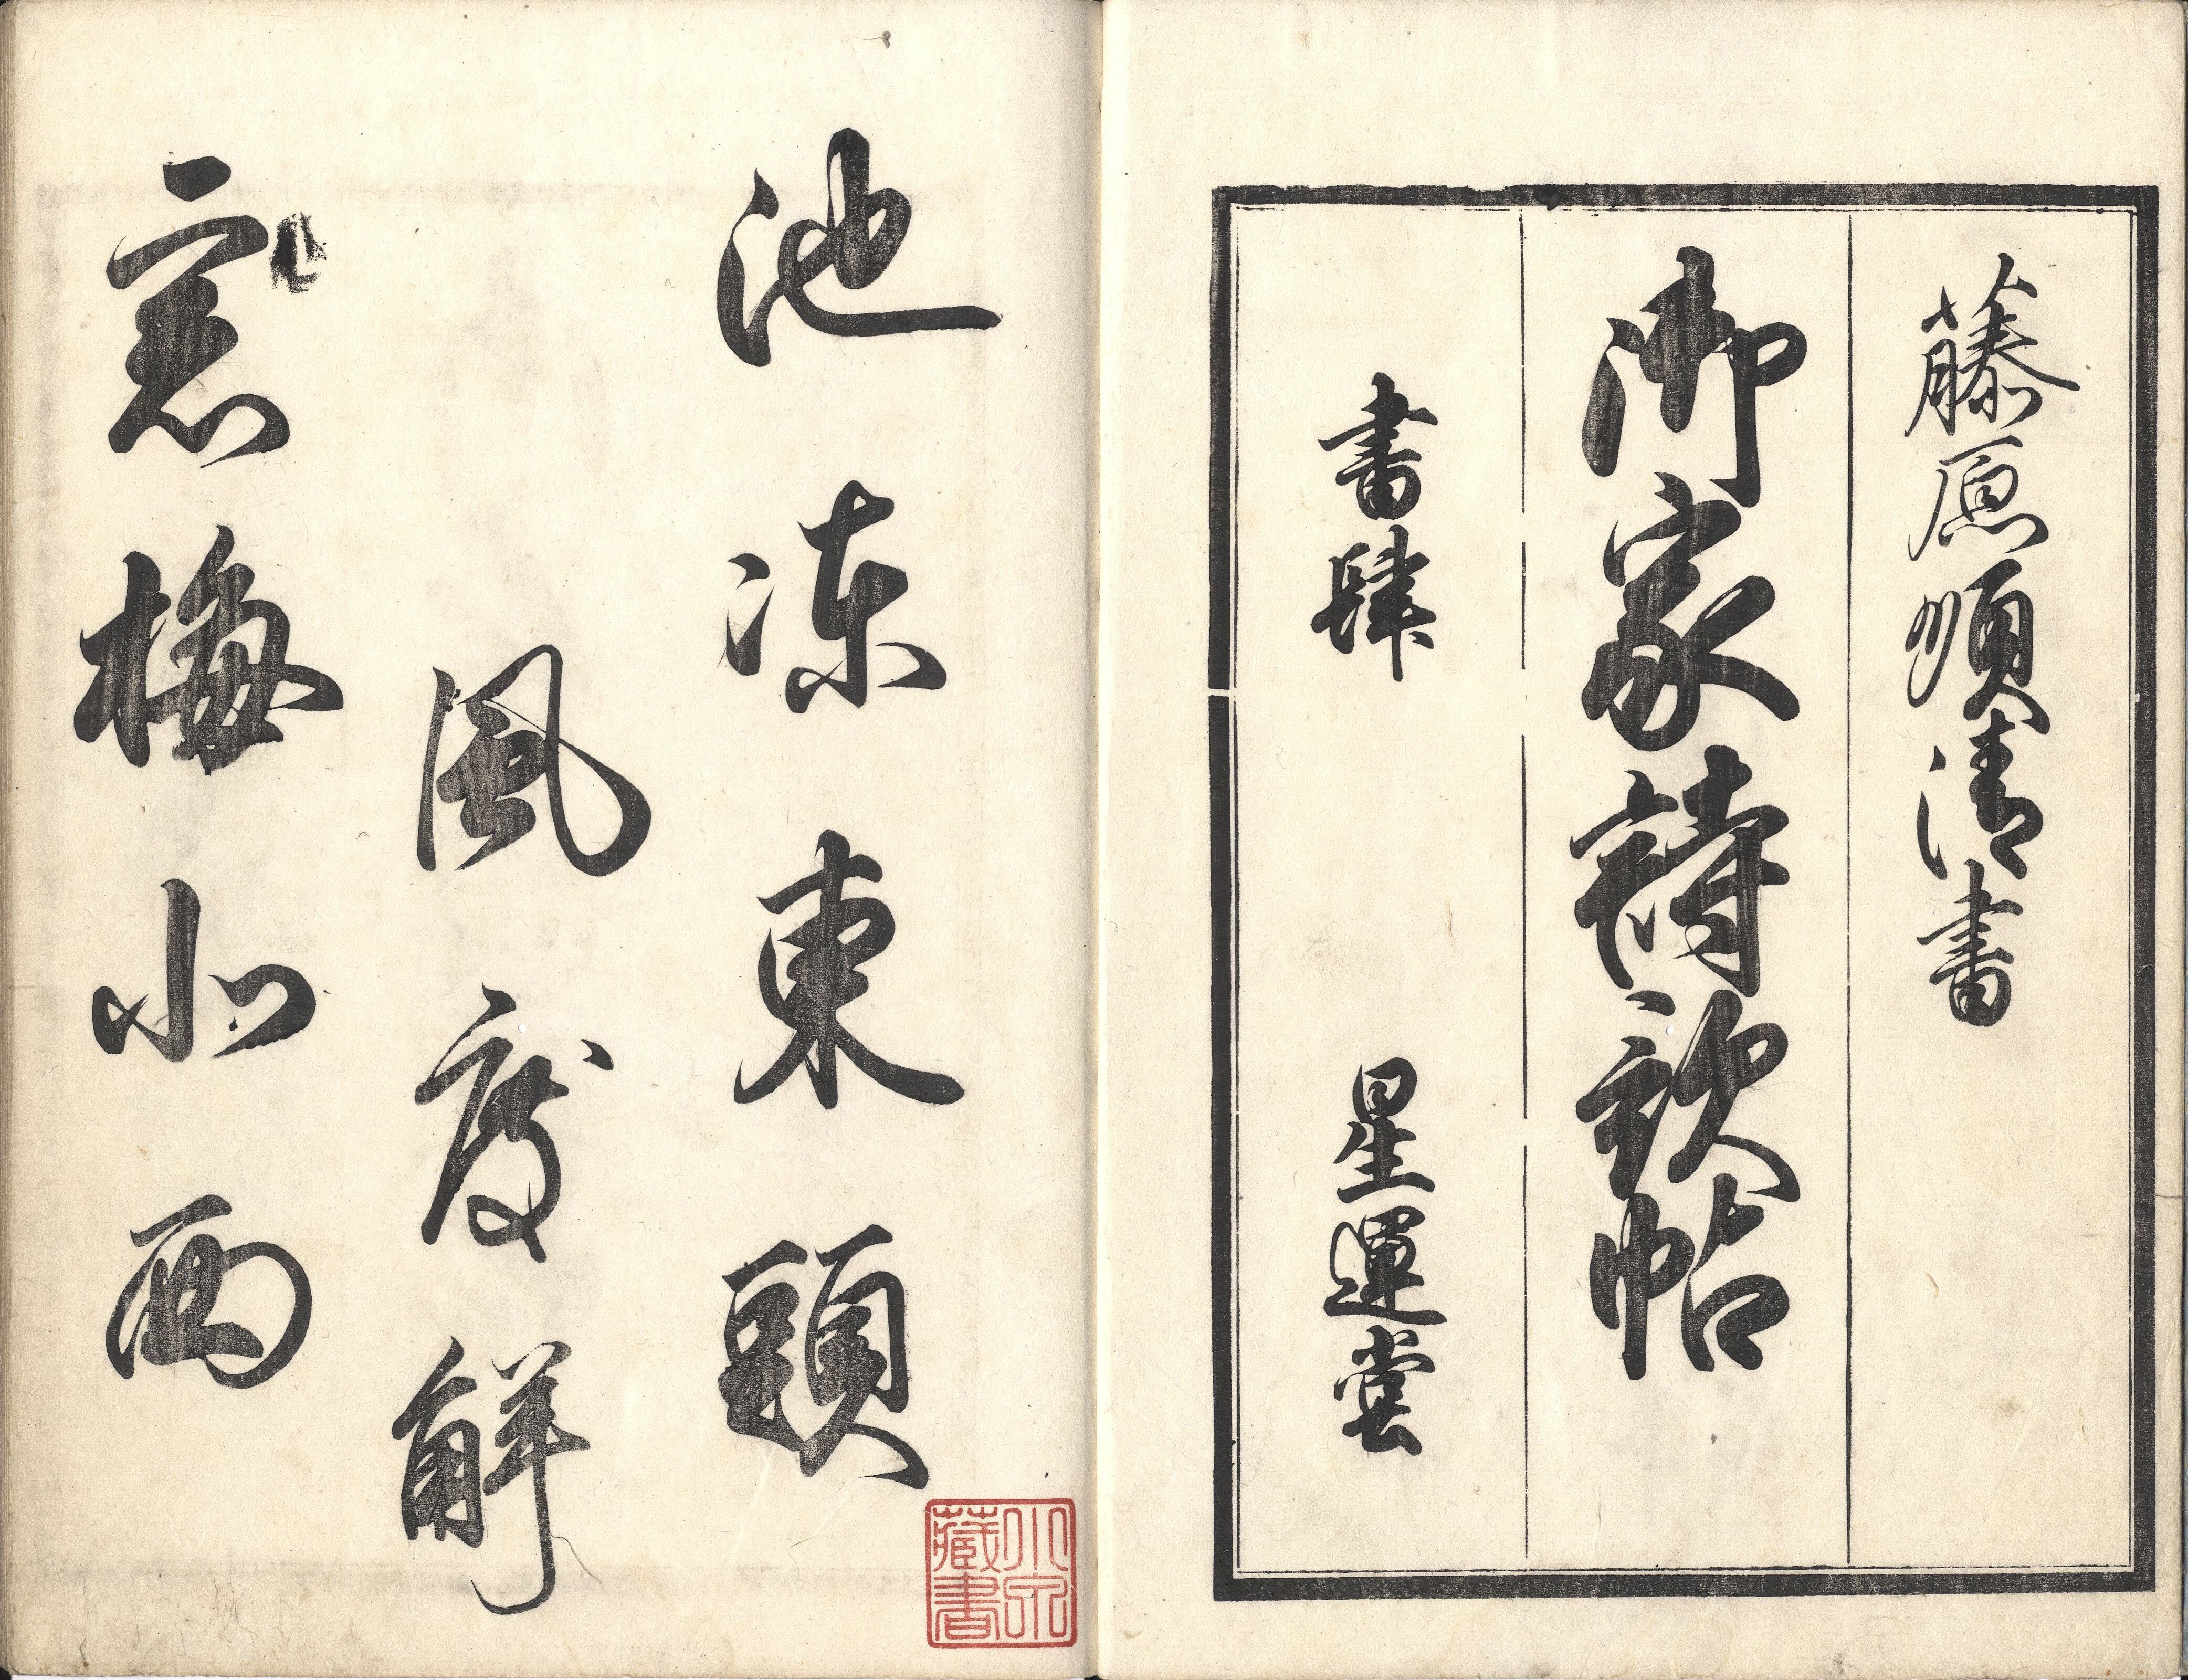 藤原順清書
御家詩歌帖
書肆 星運堂
池凍東頭
風度解
窓梅北面
小泉
藏書